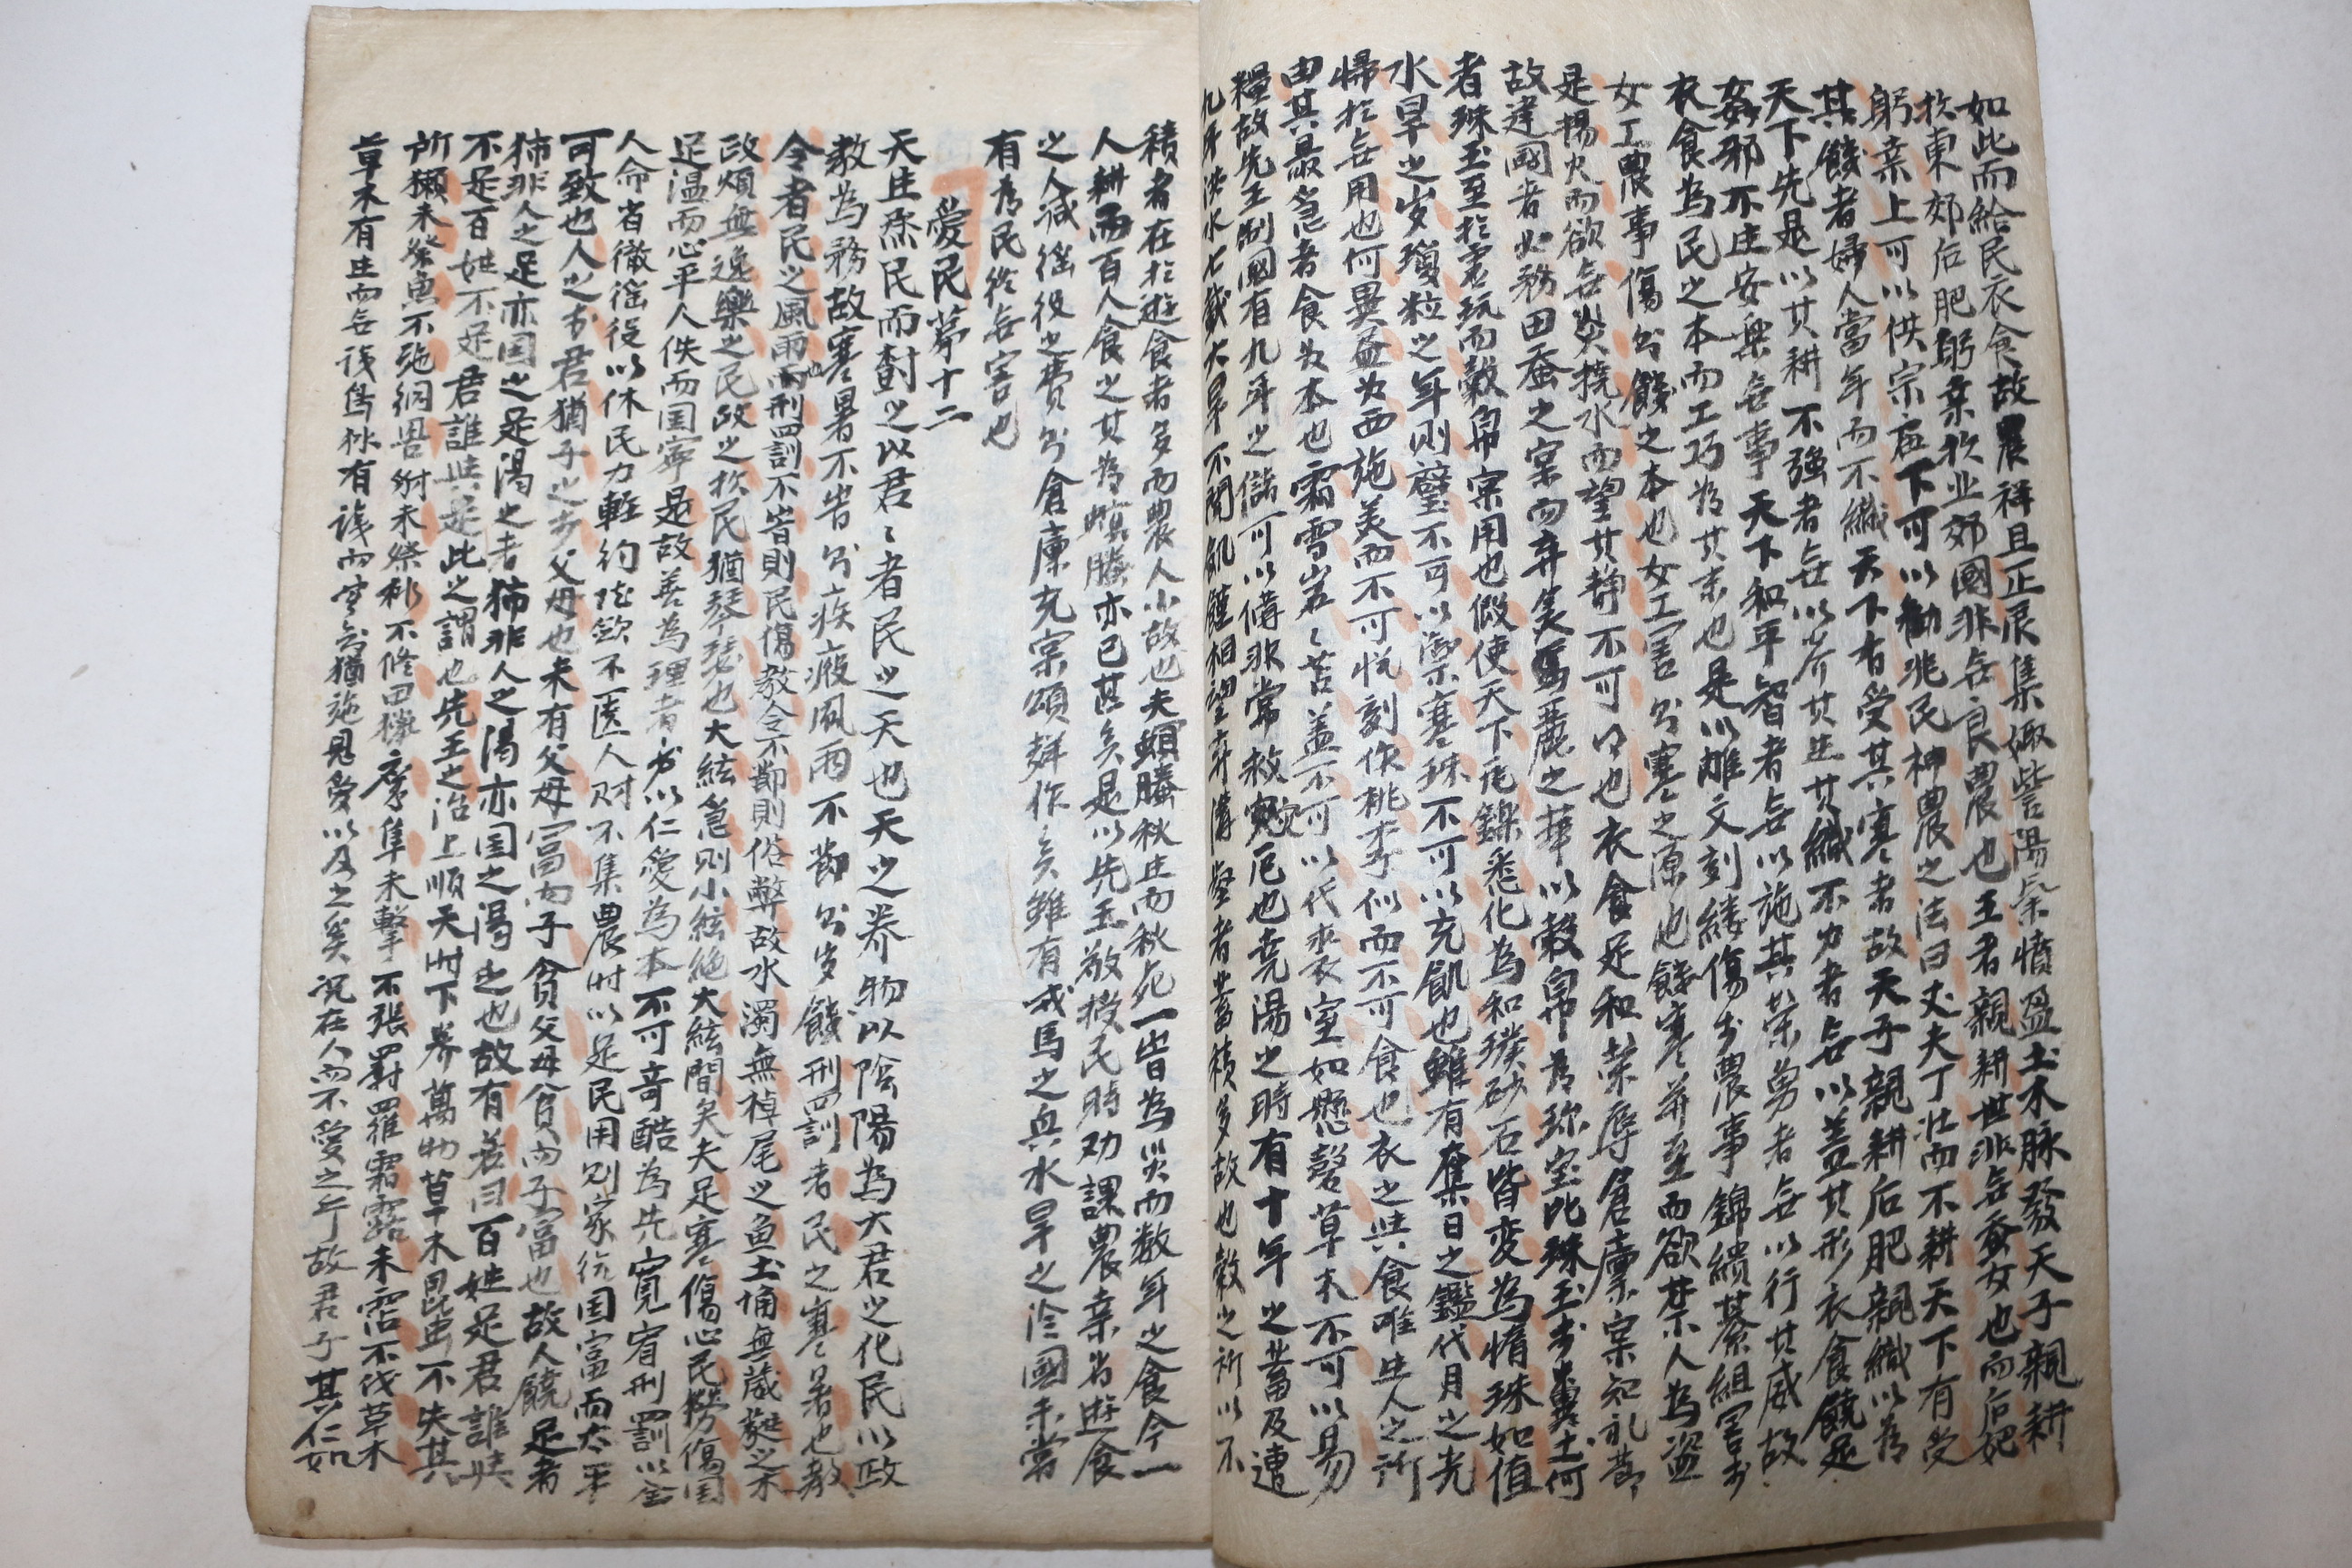 如此而給民衣食故農祥且正辰集娵訾陽氣憤盈土木脉發天子親耕
於東郊后肥躬桒於北郊國非无良農也王者親耕世非无蚕女也而后妃
躬桒上可以供宗庙下可以勧兆民神農之法曰丈夫丁壮而不耕天下有受
其餞者婦人當年而不織天下有受其寒者故天子親耕后肥親織以為
天下先是以其耕不強者无以养其生其織不力者无以盖其形衣食饒足
姦邪不生安樂无事天下和平智者无以施其策勇者无以行其威故
衣食為民之本而工巧為其末也是以雕文刻縷傷於農事錦繢綦組害於
女工農事傷则餞之本也女工害则寒之源也餞寒并至而欲禁人為盗
是揚火而欲无炎撓水而望其静不可得也衣食足知榮辱倉廪実知礼節
故建國者必務田蚕之実而弃美麗之華以穀帛为珎宝比珠玉於糞土何
者珠玉至於虚玩而穀帛実用也假使天下瓦鑠悉化為和璞砂石皆変為惰珠如值
水旱之岁瓊粒之年则璧不可以禦寒珠不可以充飢也雖有奪日之鑑代月之光
帰於无用也何異畫为西施美而不可悦刻作桃李似而不可食也衣之與食唯生人之所
由其最急者食为本也霜雪岩々苫盖不可以代裘衣室如懸磬草木不可以易
糧故先王制國有九年之儲可以備非常救災厄也尭湯之時有十年之蓄及遭
九年洪水七載大旱不聞飢饉相望弃溝壑者蓄積多故也穀之所以不
積者在於遊食者多而農人小故也夫螟螣秋生而秋死一皆為災而数年之食今一
人耕而百人食之其為螟螣亦已甚矣是以先王敬授民時劝課農桒省遊食
之人減徭役之費则倉廩充実頌聲作矣雖有戎馬之兵水旱之沴國未嘗
有为民終无害也
愛民苐十二
天生烝民而對之以君々者民之天也天之养物以陰陽為大君之化民以政
教為務故寒暑不告则疾瘧風雨不節则岁餞刑罰者民之寒暑也教
令者民之風雨也刑罰不告則民傷教令不節則俗弊故水濁無掉尾之魚土埆無葳蕤之木
政煩無逸樂之民政之於民猶琴瑟也大絃急则小絃絶大絃間矣夫足寒傷心民勞傷国
足温而心平人佚而国寧是故善為理者必以仁愛為本不可苛酷為先寛宥刑罰以全
人命省徹徭役以休民力軽約賦歛不匱人财不集農时以足民用则家給国富而太平
可致也人之於君猶子之於父母也未有父母冨而子貧父母貧而子富也故人饒足者
㧊非人之足亦国之足渴乏者㧊非人之渴亦国之渴之也故有若曰百姓足君誰與
不足百姓不足君誰與足此之謂也先王之治上順天时下养萬物草木昆虫不失其
所獺未祭魚不施網罟豺未祭㹨不修田獵鷹隼未擊不張罻羅霜露未霑不伐草木
草木有生而无識鳥狄有識而无知猶施恩愛以及之矣况在人而不愛之乎故君子其仁如